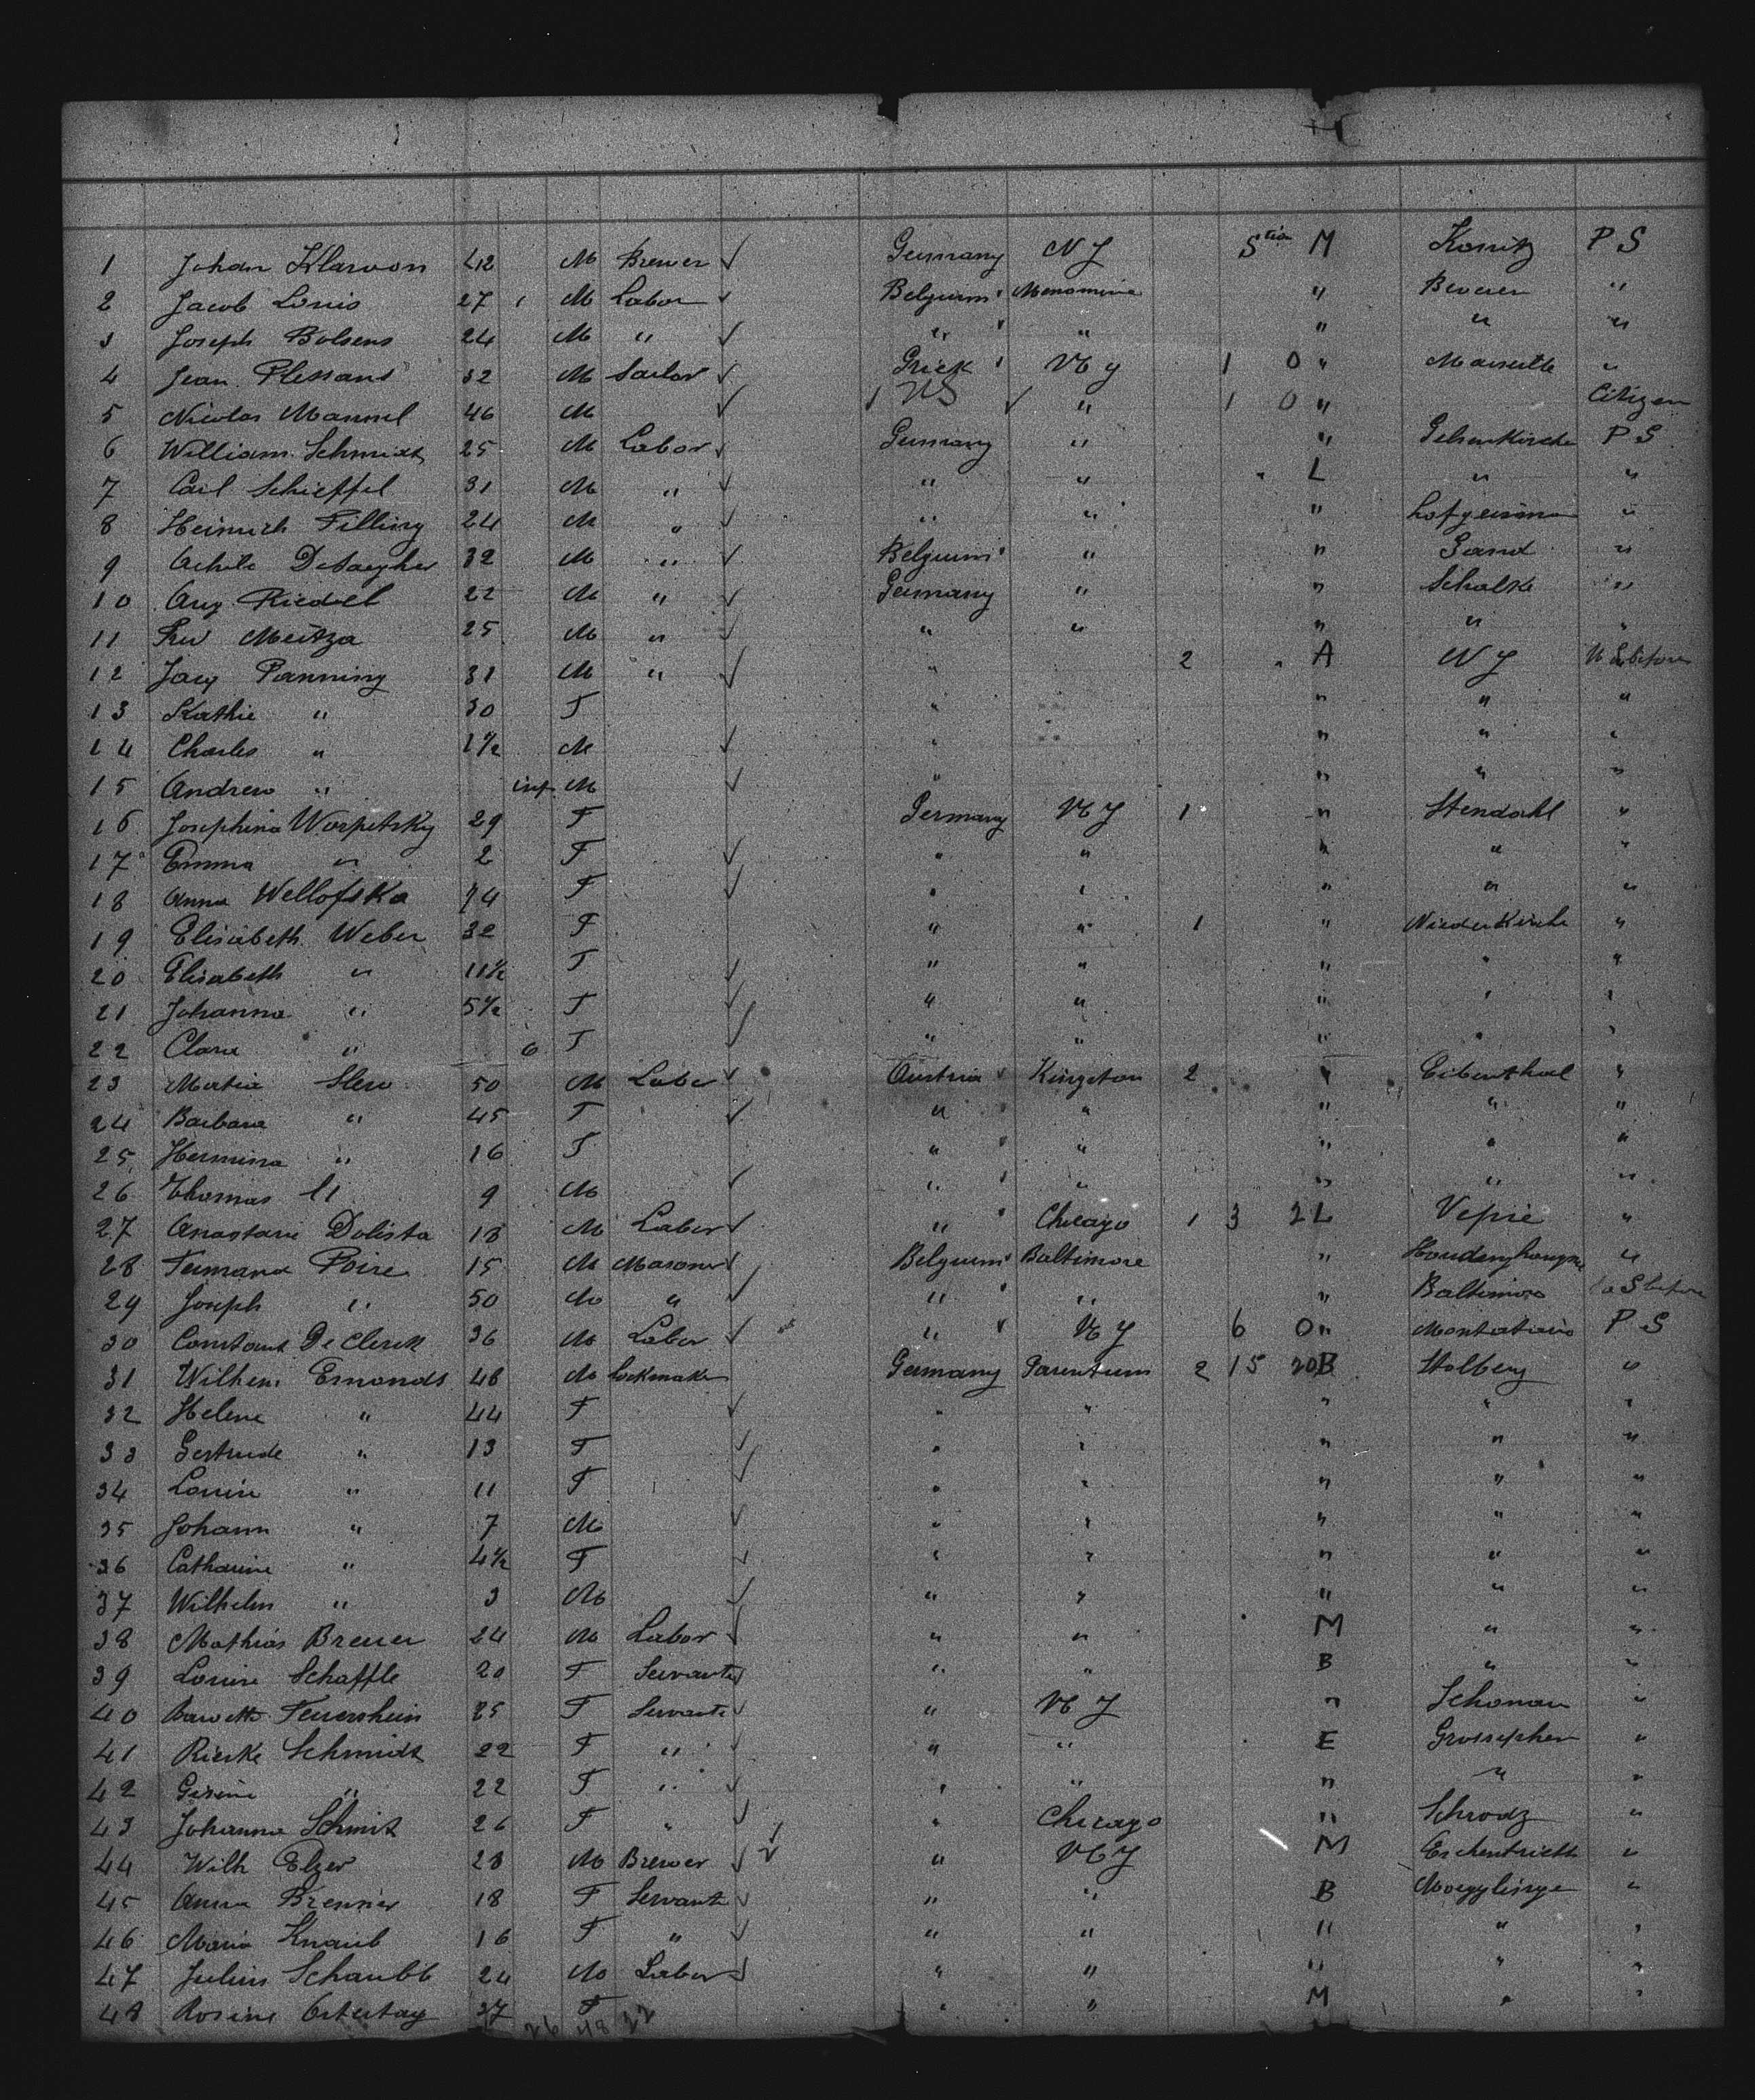 Stion
1 Johan Klarvon 42 M Brewer Germany NY M Konitz P S
2 Jacob Louis 27 M Labor Belgium Menomine " Beveren "
3 Joseph Bolsens 24 M " " " " " "
4 Jean 32 M Sailor Griek NY 1 0 " Marseille "
5 Nicolas Mannel 46 M US " 1 0 " Citizen
6 William Schmidt 25 M Labor Germany " " Gelsenkirche P S
7 Carl Schieffel 31 M " " " L " "
8 Heinrich Filling 24 M " " " " "
9 Achile 32 M " Belgium " " Gand "
10 Aug. Riedel 22 M " Germany " " Schalke "
11 Meitza 25 M " " " " " "
12 Panning 31 M " " 2 A NY U S before
13 Kathie " 30 F " " " "
14 Charles " 1½ M " " " "
15 Andrew " inf. M " " " "
16 Josephina Worpetsky 29 F Germany NY 1 " Stendahl "
17 Emma " 2 F " " " " "
18 Anna Wellofska 74 F " " " " "
19 Elisabeth Weber 32 F " " 1 " Niederkirche "
20 Elisabeth " 11½ F " " " " "
21 Johanna " 5½ F " " " " "
22 Clara " 6 F " " " " "
23 50 M Labor Austria Kingston 2 " Eibenthal "
24 Barbara " 45 F " " " " "
25 Hermina " 16 F " " " " "
26 Thomas " 9 M " " " " "
27 Anastasie Dolista 18 M Labor " Chicago 1 3 2 L "
28 Fernand Poire 15 M Masoner Belgium Baltimore " "
29 Joseph " 50 M " " " " Baltimore U S before
30 Constant De Clerck 36 M Labor " NY 6 0 " P S
31 Wilhem Emonds 48 M Lockmaker Germany 2 15 20 B Stolberg "
32 Helene " 44 F " " " " "
33 Gertrude " 13 F " " " " "
34 Louise " 11 F " " " " "
35 Johann " 7 M " " " " "
36 Catharine " 4½ F " " " " "
37 Wilhelm " 3 M " " " " "
38 Mathias Breuer 24 M Labor " " M " "
39 Louise Schaffle 20 F Servante " " B " "
40 Feuershein 25 F Servante " NY " Schonau "
41 Rieke Schmidt 22 F " " " E "
42 Gesine " 22 F " " " " " "
43 Johanna Schmit 26 F " " Chicago " Schrodz "
44 Wilh Elzer 28 M Brewer " NY M "
45 Anna Brenner 18 F Servante " " B "
46 Maria Knaub 16 F " " " " " "
47 Julius Schaubb 24 M Labor " " " " "
48 Rosine Ostertag 37 F " " M " "
26 48 22